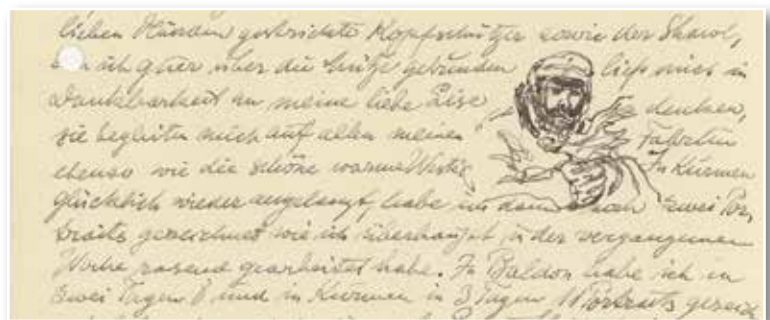 lieben Händen gestrickte Kopfschützer sowie der Shawl,
ich quer über die Mütze gebunden ließ mich in
Dankbarkeit an meine liebe Lise denken,
sie begleiten mich auf allen meinen Fahrten
ebenso wie die schöne warme Weste. In Kurmen
glücklich wieder angelangt, habe ich dann noch zwei Por,
traits gezeichnet wie ich überhaupt in der vergangenen
Woche rasend gearbeitet habe. In Baldon habe ich in
zwei Tagen 8 und in Kurmen in 3 Tagen 11 Portraits gezeich